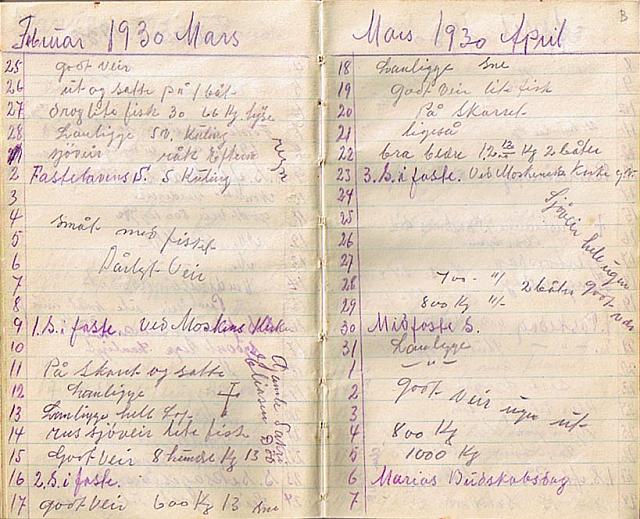 Februar 1930 Mars
25 godt veir
26 ut og satte på 1 båt
27 drog lite fisk 30 66 Kg
28 Landligge Kuling
1 sjøveir
2 Fastelavens S. S Kuling
3
4 småt med fisket
5
6 Dårligt veir
7
8
9 1. S. i faste. Ved Moskenes Kirke
10
11 På Skaret og satte
12 Landligge
13 Landligge
14 sjøveir lite fisk
15 Godt veir 8 hundre Kg 13
16 2. S. i faste.
17 godt veir 600 Kg 13
Mars 1930 April
B
18 Landligge Sne
19 Godt veir lite fisk
20 På Skaret
21 ligeså
22 bra bedre Kg 2 båter
23 3. S. i faste. Ved Moskenes Kirke
24
25 Sjøveir hele ugen
26
27
28 700 - "/ 2 båter godt
29 800 Kg "/
30 Midfaste S.
31 Landligge
1 - "
2 godt veir ugen ut
3
4 800 Kg
5 1000 Kg
6 Marias Budskabsdag
7